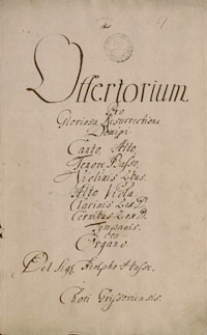 Offertorium.
Pro
Gloriosa Resurrectione
Domini
Canto, Alto,
Tenore, Basso,
Violinis 2bus.
Alto Viola.
Clarinis 2 ex D.
Cornibus 2 ex D.
Tympanis.
Con
Organo.
Del Sigr. Adolpho Hasse.
Chori Grissoviensis.